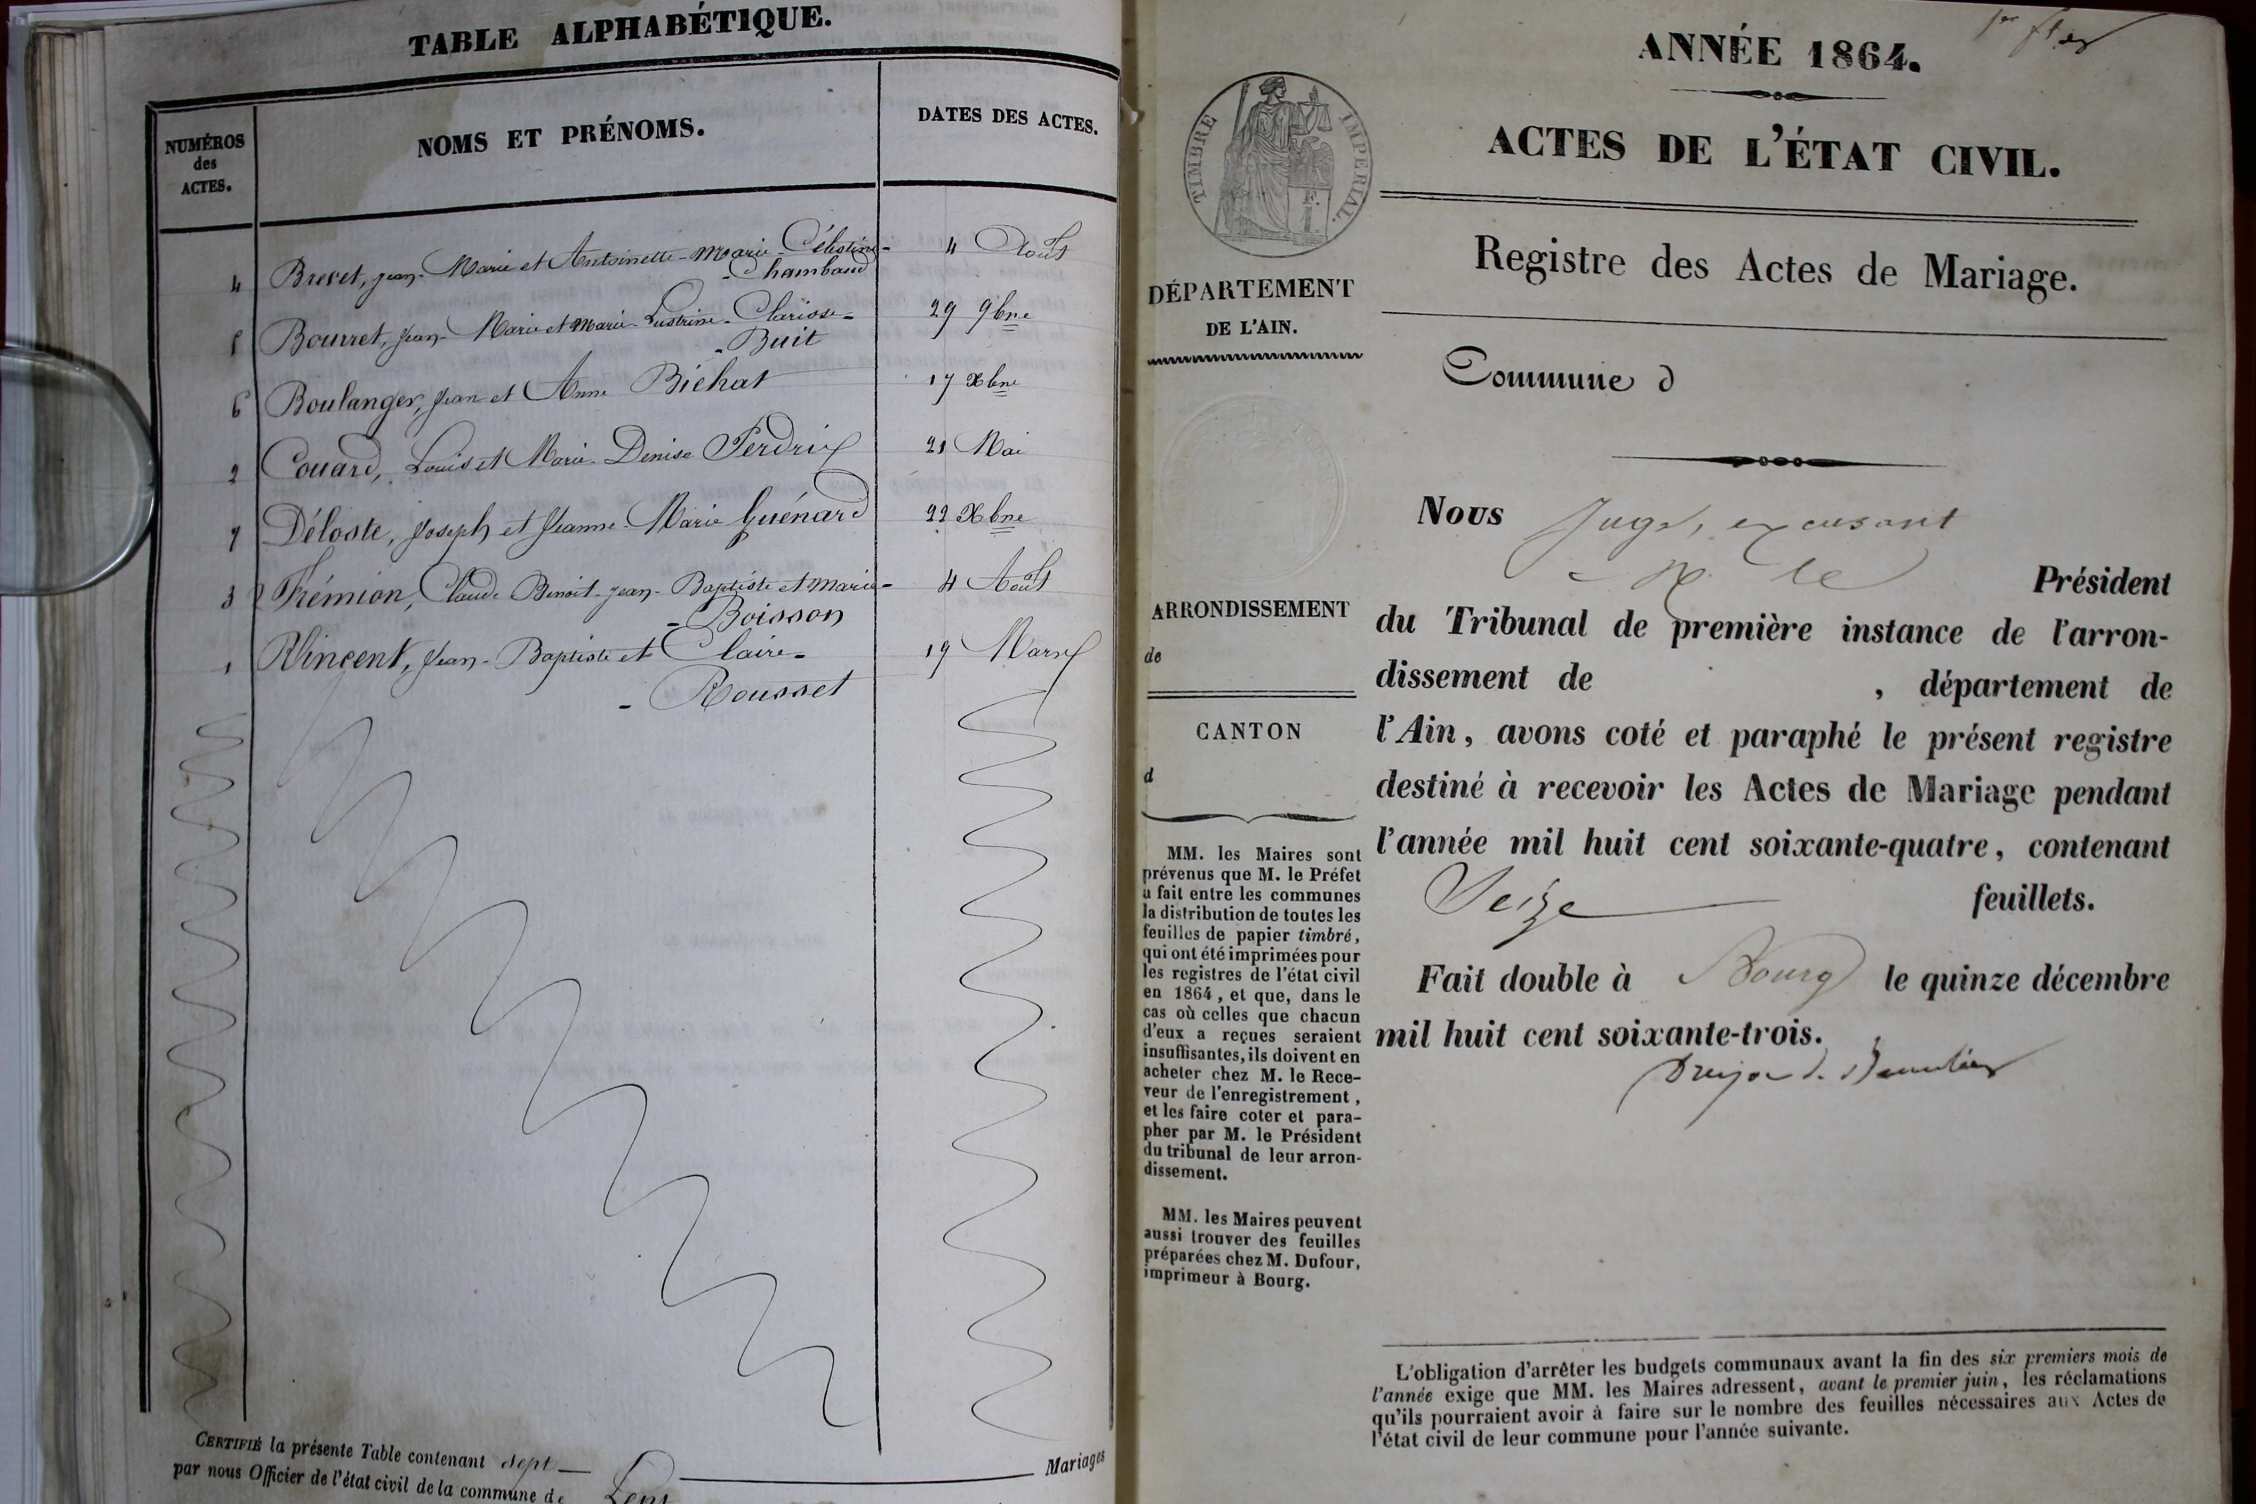 TABLE ALPHABÉTIQUE.
NUMÉROS
des
ACTES.
NOMS ET PRÉNOMS.
DATES DES ACTES.
4 Brevet, Jean-Marie et Antoinette-Marie-Célestine- 4 Août
-Chambaud
5 Bourret, Jean-Marie et Marie- -Clarisse- 29 9bre
-Buit
6 Boulanger, Jean et Anne Bichat 17 Xbre
2 Couard, Louis et Marie-Denise Perdrix 21 Mai
7 Déloste, Joseph et Jeanne-Marie Guénard 22 Xbre
3 Frémion, Claude-Benoit-Jean-Baptiste et Marie- 4 Août
-Boisson
1 Vincent, Jean-Baptiste et Claire- 19 Mars
-Rousset
CERTIFIÉ la présente Table contenant sept Mariages
par nous Officier de l'état civil de la commune de
1er
ANNÉE 1864.
TIMBRE IMPÉRIAL.
ACTES DE L'ÉTAT CIVIL.
Registre des Actes de Mariage.
DÉPARTEMENT
DE L'AIN.
Commune d
ARRONDISSEMENT
de
CANTON
d
MM. les Maires sont
prévenus que M. le Préfet
a fait entre les communes
la distribution de toutes les
feuilles de papier timbré,
qui ont été imprimées pour
les registres de l'état civil
en 1864, et que, dans le
cas où celles que chacun
d'eux a reçues seraient
insuffisantes, ils doivent en
acheter chez M. le Rece-
veur de l'enregistrement,
et les faire coter et para-
pher par M. le Président
du tribunal de leur arron-
dissement.
MM. les Maires peuvent
aussi trouver des feuilles
préparées chez M. Dufour,
imprimeur à Bourg.
Nous Juge, excusant
M. le Président
du Tribunal de première instance de l'arron-
dissement de , département de
l'Ain, avons coté et paraphé le présent registre
destiné à recevoir les Actes de Mariage pendant
l'année mil huit cent soixante-quatre, contenant
Seize feuillets.
Fait double à Bourg le quinze décembre
mil huit cent soixante-trois.
L'obligation d'arrêter les budgets communaux avant la fin des six premiers mois de
l'année exige que MM. les Maires adressent, avant le premier juin, les réclamations
qu'ils pourraient avoir à faire sur le nombre des feuilles nécessaires aux Actes de
l'état civil de leur commune pour l'année suivante.